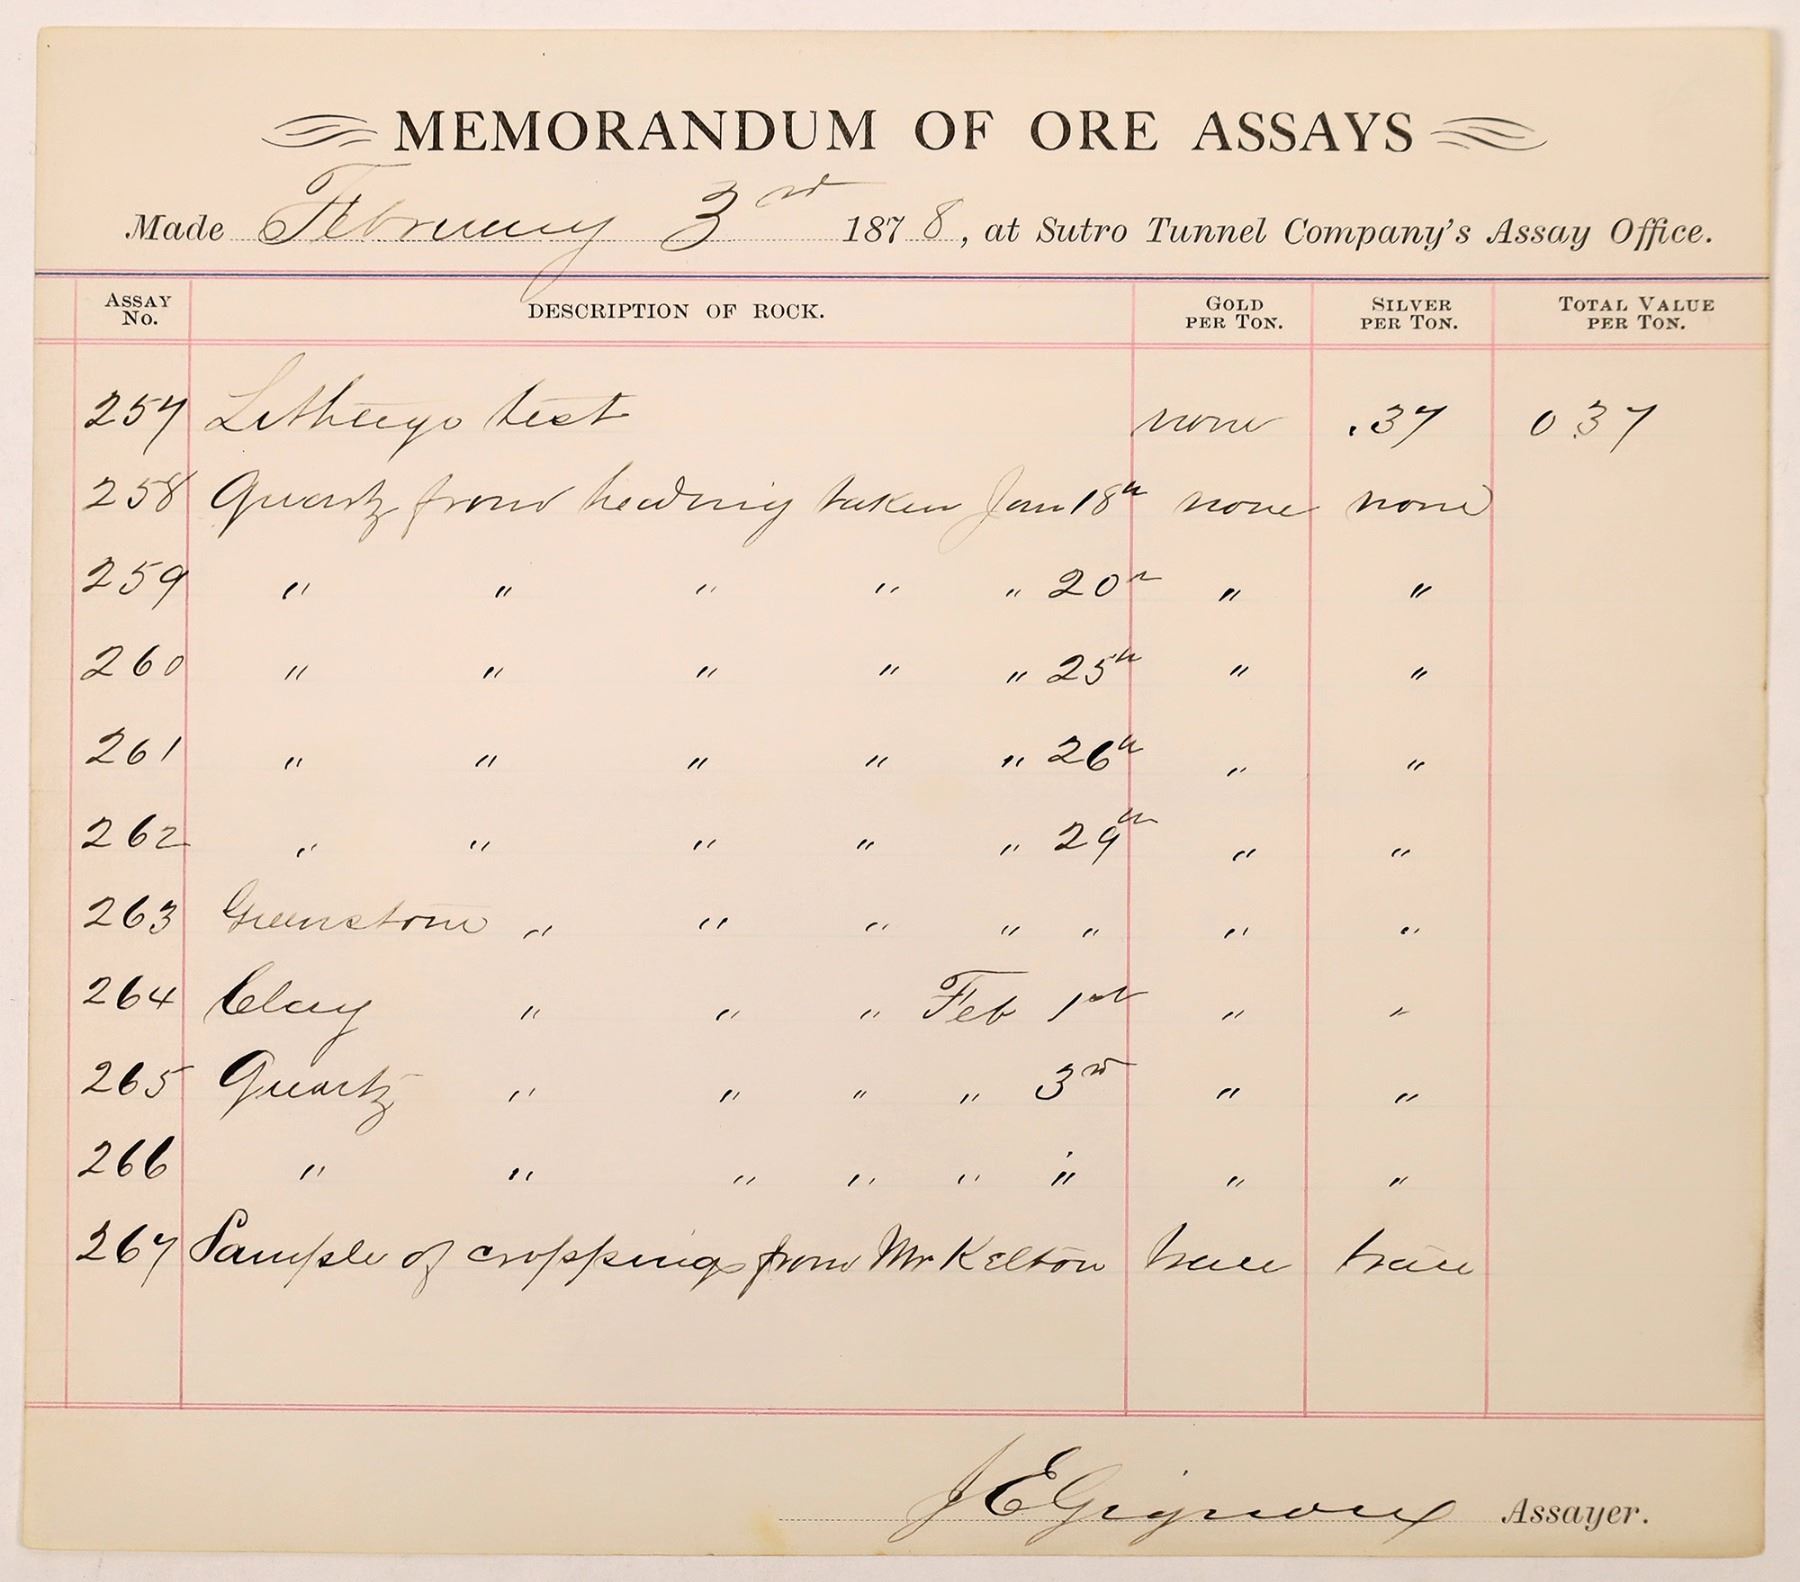 MEMORANDUM OF ORE ASSAYS
Made February 3rd 1878, at Sutro Tunnel Company's Assay Office.
ASSAY No. DESCRIPTION OF ROCK. GOLD PER TON. SILVER PER TON. TOTAL VALUE PER TON.
257 test none .37 0 37
258 Quartz from heading taken Jan 18th none none
259 " " " " " 20th " "
260 " " " " " 25th " "
261 " " " " " 26th " "
262 " " " " " 29th " "
263 Greenstone " " " " " " "
264 Clay " " " Feb 1st " "
265 Quartz " " " " 3rd " "
266 " " " " " " " "
267 Sample of croppings from Mr Kelton trace trace
J E Gignoux Assayer.